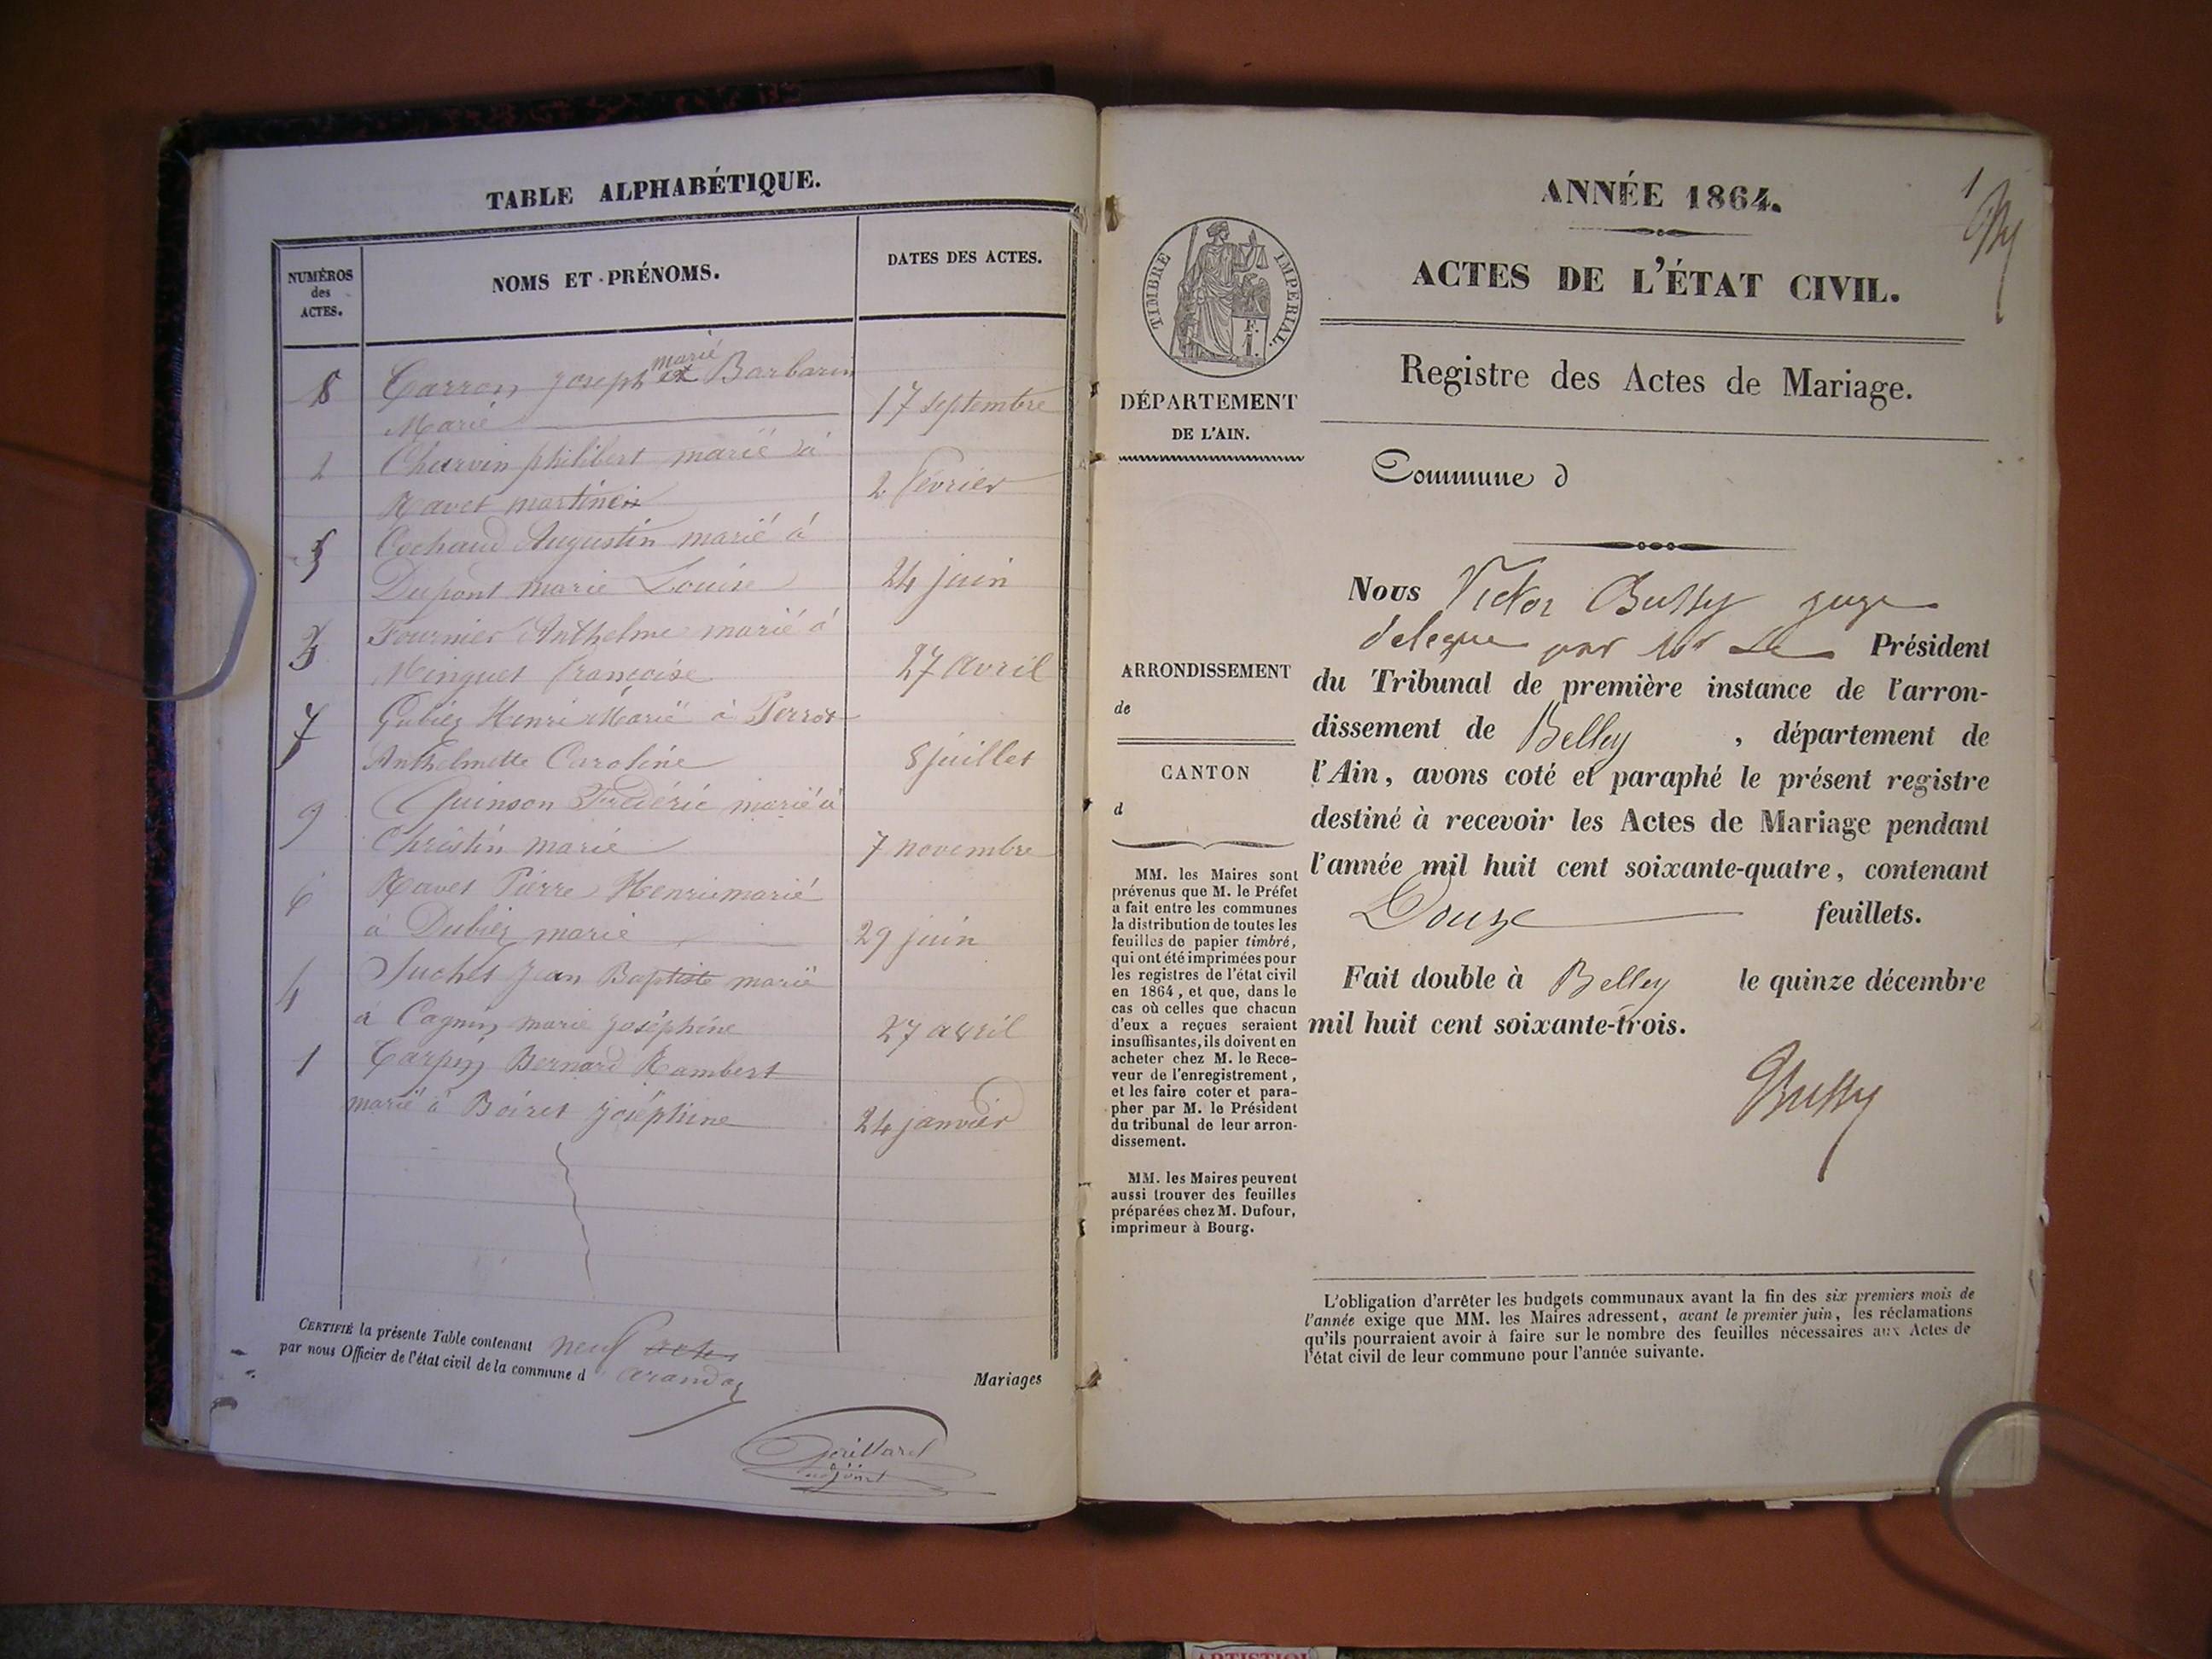 TABLE ALPHABÉTIQUE.
NUMÉROS
des
ACTES.
NOMS ET PRÉNOMS.
DATES DES ACTES.
8 Carron Joseph marié à Barbarin
Marie 17 septembre
2 Charvin philibert marié à
Ravet martine 2 février
5 Cochaud Augustin marié à
Dupont marie Louise 24 juin
3 Fournier Anthelme marié à
Minguet françoise 27 avril
7 Gubiez Henri Marié à Perrot
Anthelmette Caroline 8 juillet
9 Quinson Frédéric marié à
Christin marie 7 novembre
6 Ravet Pierre Henri marié
à Dubiez marie 29 juin
4 Suchet Jean Baptiste marié
à Cagnin marie joséphine 27 avril
1 Carpin Bernard Rambert
marié à Boiret joséphine 24 janvier
CERTIFIÉ la présente Table contenant neuf actes
par nous Officier de l'état civil de la commune d arandas
Mariages
adjoint
1
ANNÉE 1864.
ACTES DE L'ÉTAT CIVIL.
TIMBRE IMPÉRIAL.
Registre des Actes de Mariage.
DÉPARTEMENT
DE L'AIN.
Commune d
ARRONDISSEMENT
de
CANTON
d
MM. les Maires sont
prévenus que M. le Préfet
a fait entre les communes
la distribution de toutes les
feuilles de papier timbré,
qui ont été imprimées pour
les registres de l'état civil
en 1864, et que, dans le
cas où celles que chacun
d'eux a reçues seraient
insuffisantes, ils doivent en
acheter chez M. le Rece-
veur de l'enregistrement,
et les faire coter et para-
pher par M. le Président
du tribunal de leur arron-
dissement.
MM. les Maires peuvent
aussi trouver des feuilles
préparées chez M. Dufour,
imprimeur à Bourg.
Nous Victor Bussy juge
delegue par Mr Le Président
du Tribunal de première instance de l'arron-
dissement de Belley , département de
l'Ain, avons coté et paraphé le présent registre
destiné à recevoir les Actes de Mariage pendant
l'année mil huit cent soixante-quatre, contenant
Douze feuillets.
Fait double à Belley le quinze décembre
mil huit cent soixante-trois.
Bussy
L'obligation d'arrêter les budgets communaux avant la fin des six premiers mois de
l'année exige que MM. les Maires adressent, avant le premier juin, les réclamations
qu'ils pourraient avoir à faire sur le nombre des feuilles nécessaires aux Actes de
l'état civil de leur commune pour l'année suivante.